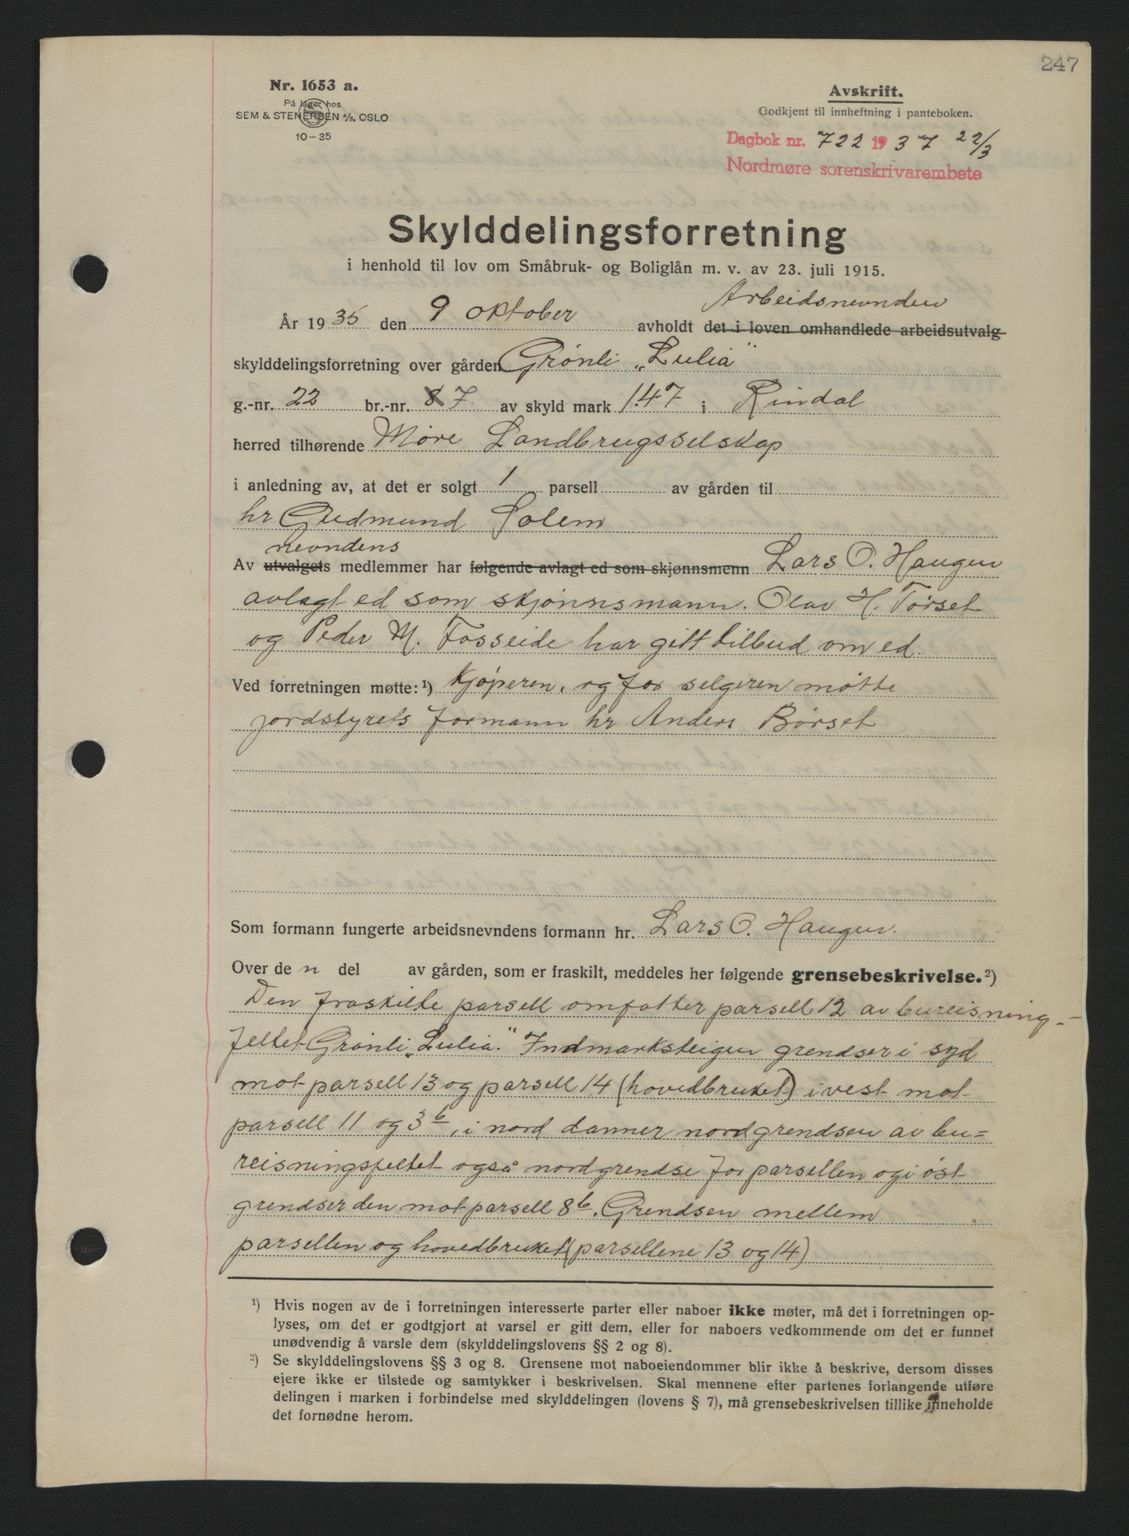 247
Nr. 1653 a.
På lager hos
SEM & STENERSEN A/S, OSLO
10–35
Avskrift.
Godkjent til innheftning i panteboken.
Dagbok nr. 722 1937 22/3
Nordmøre sorenskrivarembete
Skylddelingsforretning
i henhold til lov om Småbruk- og Boliglån m. v. av 23. juli 1915.
Arbeidsnevnden
År 1935 den 9 oktober avholdt det i loven omhandlede arbeidsutvalg
skylddelingsforretning over gården Grønli „Lulia"
g.-nr. 22 br.-nr. 8 7 av skyld mark 1.47 i Rindal
herred tilhørende Møre Landbrugsselskap
i anledning av, at det er solgt 1 parsell av gården til
hr Gudmund Solem
nevndens
Av utvalgets medlemmer har følgende avlagt ed som skjønnsmenn Lars O. Haugen
avlagt ed som skjønnsmann. Olav H. Tørset
og Peder M. Fosseide har gitt tilbud om ed.
Ved forretningen møtte:¹) Kjøperen, og for selgeren møtte
jordstyrets formann hr Anders Børset
Som formann fungerte arbeidsnevndens formann hr. Lars O. Haugen.
Over den del av gården, som er fraskilt, meddeles her følgende grensebeskrivelse.²)
Den fraskilte parsell omfatter parsell 12 av bureisning-
feltet Grønli „Lulia." Indmarksteigen grendser i syd
mot parsell 13 og parsell 14 (hovedbruket) i vest mot
parsell 11 og 3b, i nord danner nordgrendsen av bu=
reisningsfeltet også nordgrendse for parsellen og i øst
grendser den mot parsell 8b. Grendsen mellem
parsellen og hovedbruket (parsellene 13 og 14)
¹) Hvis nogen av de i forretningen interesserte parter eller naboer ikke møter, må det i forretningen op-
lyses, om det er godtgjort at varsel er gitt dem, eller for naboers vedkommende om det er funnet
unødvendig å varsle dem (skylddelingslovens §§ 2 og 8).
²) Se skylddelingslovens §§ 3 og 8. Grensene mot naboeiendommer blir ikke å beskrive, dersom disses
ejere ikke er tilstede og samtykker i beskrivelsen. Skal mennene efter partenes forlangende utføre
delingen i marken i forbindelse med skylddelingen (lovens § 7), må grensebeskrivelsen tillike inneholde
det fornødne herom.